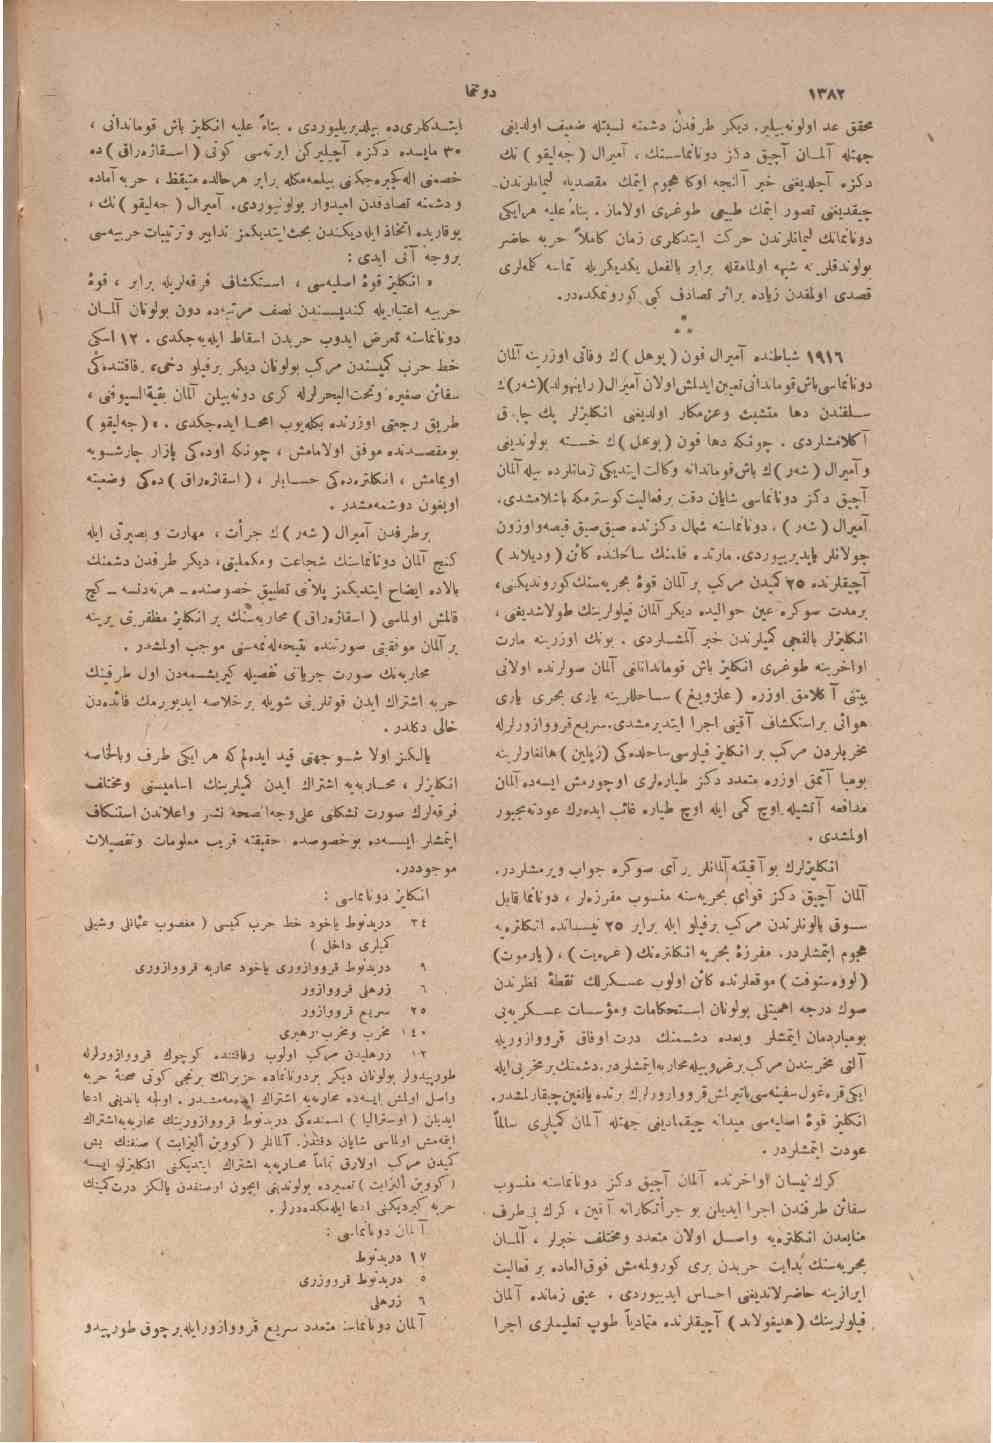 ١٣٨٢
دوننما
محقق عد اولونه‌بیلیر. دیكر طرفدن دشمنه نسبتله ضعیف اولدیغی
جهتله آلمـان آچیق دكز دونانماسـنك ، آمیرال ( جه‌لیقو ) نك
دكزه آچلدیغنی خبر آلنجه اوكا هجوم ایتمك مقصدیله لیمانلرندن
چیقدیغنی تصور ایتمك طبیعی طوغری اولاماز . بناءً علیه هر ایكی
دونانمانك لیمانلرندن حركت ایتدكلری زمان كاملاً حربه حاضر
بولوندقلرینه شبهه اولمامقله برابر بالفعل یكدیكریله تماسه كلمه‌لری
قصدی اولمقدن زیاده براثر تصادف كبی كورونمكده‌در.
* * *
١٩١٦ شباطنده آمیرال فون ( پوهل ) ك وفاتی اوزرینه آلمان
دونانماسی باش قوماندانی تعیین ایدلمش اولان آمیرال ( راینهولد ) ( شه‌ر ) ك
سـلفندن دها متشبث وعزمكار اولدیغی انكلیزلر پك چابوق
آكلامشلردی . چونكه دها فون ( پوهل ) ك خسـته بولوندیغی
و آمیرال ( شه‌ر ) ك باش قوماندانه وكالت ایتدیكی زمانلرده بیله آلمان
آچیق دكز دونانماسی شایان دقت برفعالیت كوسترمكه باشلامشدی.
آمیرال ( شه‌ر ) ، دونانماسنه شمال دكزنده صیق صیق قیصه واوزون
جولانلر یاپدیریبوردی. مارتده فلمنك ساحلنده كائن ( ودیلاند )
آچیقلرنده ٢٥ كمیدن مركب بر آلمان قوهٔ بحریه‌سنك كوروندیكنی،
برمدت سوكره عین حوالیده دیكر آلمان فیلولرینك طولاشدیغنی ،
انكلیزلر بالقجی كمیلرندن خبر آلمشـلردی . بونك اوزرینه مارت
اواخرینه طوغری انكلیز باش قوماندانلغی آلمان صولرنده اولانی
بیتنی آكلامق اوزره ( شلزویغ ) سـاحللرینه یاری بحری یاری
هوائی براستكشاف آقینی اجرا ایتدیرمشدی. سریع قرووازورلرله
مخریبلردن مركب بر انكلیز فیلوسی ساحلده‌كی ( زپلین ) هانغارلرینه
بومبا آتمق اوزره متعدد دكز طیاره‌لری اوچورمش ایسه‌ده آلمان
مدافعه آتشیله اوچ كمی ایله اوچ طیاره غائب ایده‌رك عودته مجبور
اولمشدی .
انكلیزلرك بو آقینه آلمانلر بر آی صوكره جواب ویرمشلردر.
آلمان آچیق دكز قوای بحریه‌سنه منسوب مفرزه‌لر ، دونانما قابل
سـوق بالونلرندن مركب برفیلو ایله برابر ٢٥ نیسـانده انكلتره‌یه
هجوم ایتمشلردر. مفرزهٔ بحریه انكلتره‌نك ( غره‌یت ) ، ( یارموت)
( لووه‌ستوفت ) موقعلرنده كائن اولوب عسـكرلك نقطهٔ نظرندن
صوك درجه اهمیتلی بولونان اسـتحكامات ومؤسسات عسـكریه‌یی
بومباردمان ایتمشلر وبعده دشـمنك درت اوفاق قرووازوریله
آلتی مخربندن مركب برغروپیله محاربه ایتمشلردر. دشمنك بر مخربی ایله
ایكی قره‌غول سفینه‌سی باتیرلمش قرووازورلرك برنده یانغین چیقارلمشدر.
انكلیز قوهٔ اصلیه‌سی میدانه چیقمادیغی جهتله آلمان كمیلری سالماً
عودت ایتمشلردر .
كرك نیسان اواخرنده آلمان آچیق دكز دونانماسنه منسوب
سفائن طرفندن اجرا ایدیلن بو جرأتكارانه آقین ، كرك بی‌طرف
منابعدن انكلتره‌یه واصـل اولان متعدد ومختلف خبرلر ، آلمـان
بحریه‌سنك بدایت حربدن بری كورولمه‌مش فوق‌العاده بر فعالیت
ابرازینه حاضرلاندیغنی احساس ایدیبوردی . عینی زمانده آلمان
فیلولرینك ( هلیغولاند ) آچیقلرنده متمادیاً طوپ تعلیملری اجرا
ایتـدكلری‌ده بیلدیریلیوردی . بناءً علیه انكلیز باش قوماندانی ،
٣٠ مایسده دكزه آچیلیركن ایرته‌سی كونی ( اسـقاژه‌راق ) ده
خصمنی اله كچیره‌جكنی بیلمه‌مكله برابر هرحالده متیقظ ، حربه آماده
و دشمنه تصادفدن امیدوار بولونیوردی. آمیرال ( جه‌لیقو ) نك ،
یوقاریده اتخاذ ایله‌دیكندن بحث ایتدیكمز تدابیر وترتیبات حربیه‌سی
بروجه آتی ایدی :
« انكلیز قوهٔ اصلیه‌سی ، اسـتكشاف فرقه‌لریله برابر ، قوهٔ
حربیه اعتباریله كندیسـندن نصف مرتبه‌ده دون بولونان آلمـان
دونانماسنه تعرض ایدوب حربدن اسقاط ایله‌یه‌جكدی . ١٢ اسكی
خط حرب كمیسندن مركب بولونان دیكر برفیلو دخی، رفاقتنده‌كی
سفائن صغیره وتحت‌البحرلرله كری دونه‌بیلن آلمان بقیة‌السیوفنی ،
طریق رجعتی اوزرنده بكله‌یوب امحـا ایده‌جكدی . » ( جه‌لیقو )
بومقصـدنده موفق اولامامش ، چونكه اوده‌كی بازار چارشـویه
اویمامش ، انكلتره‌ده‌كی حسـابلر ، ( اسقاژه‌راق ) ده‌كی وضعیته
اویغون دوشمه‌مشدر .
برطرفدن آمیرال ( شه‌ر ) ك جرأت ، مهارت و بصیرتی ایله
كنج آلمان دونانماسنك شجاعت ومكملیتی، دیكر طرفدن دشمنك
بالاده ایضاح ایتدیكمز پلاننی تطبیق خصوصنده ــ هرنه‌دنسه ــ كچ
قالمش اولماسی ( اسقاژه‌راق ) محاربه‌سنك بر انكلیز مظفریتی یرینه
بر آلمان موفقیتی صورتنده نتیجه‌له‌نمه‌سنی موجب اولمشدر .
محاربه‌نك صورت جریاننی تفصیله كیریشـمه‌دن اول طرفینك
حربه اشتراك ایدن قوتلرینی شویله بر خلاصه ایدیویرمك فائده‌دن
خالی دكلدر .
یالـكز اولا شـو جهتی قید ایده‌لم كه هر ایكی طرف وبالخاصه
انكلیزلر ، محـاربه‌یه اشتراك ایدن كمیلرینك اسامیسنی ومختلف
فرقه‌لرك صورت تشكلنی علی وجه‌الصحه نشر واعلاندن استنكاف
ایتمشلر ایسـه‌ده بوخصوصده حقیقته قریب معلومات وتفصیلات
موجوددر.
انكلیز دونانماسی :
٣٤ دریدنوط یاخود خط حرب كمیسی ( مغصوب عثمانلی وشیلی
كمیلری داخل )
٩ دریدنوط قرووازوری یاخود محاربه قرووازوری
٦ زرهلی قرووازور
٢٥ سریع قرووازور
١٤٠ مخرب ومخرب رهبری
١٢ زرهلیدن مركب اولوب رفاقتنده كوچوك قرووازورلرله
طورپیدولر بولونان دیكر بردونانماده حزیرانك برنجی كونی صحنهٔ حربه
واصل اولمش ایسه‌ده محاربه‌یه اشتراك ایده‌مه‌مشدر . اولجه یاندیغی ادعا
ایدیلن ( اوسترالیا ) اسمنده‌كی دریدنوط قرووازورینك محاربه‌یه اشتراك
ایتمه‌مش اولماسی شایان دقتدر. آلمانلر ( كووین ألیزابت ) صنفنك بش
كمیدن مركب اولارق تماماً محـاربه‌یه اشتراك ایتدیكنی انكلیزلر ایسـه
( كووین ألیزابت ) تعمیرده بولوندیغی ایچون اوصنفدن یالكز درت كمینك
حربه كیردیكنی ادعا ایله‌مكده‌درلر .
آلمان دونانماسی :
١٧ دریدنوط
٥ دریدنوط قرووزری
٦ زرهلی
آلمان دونانماسنه متعدد سریع قرووازورایله برچوق طورپیدو